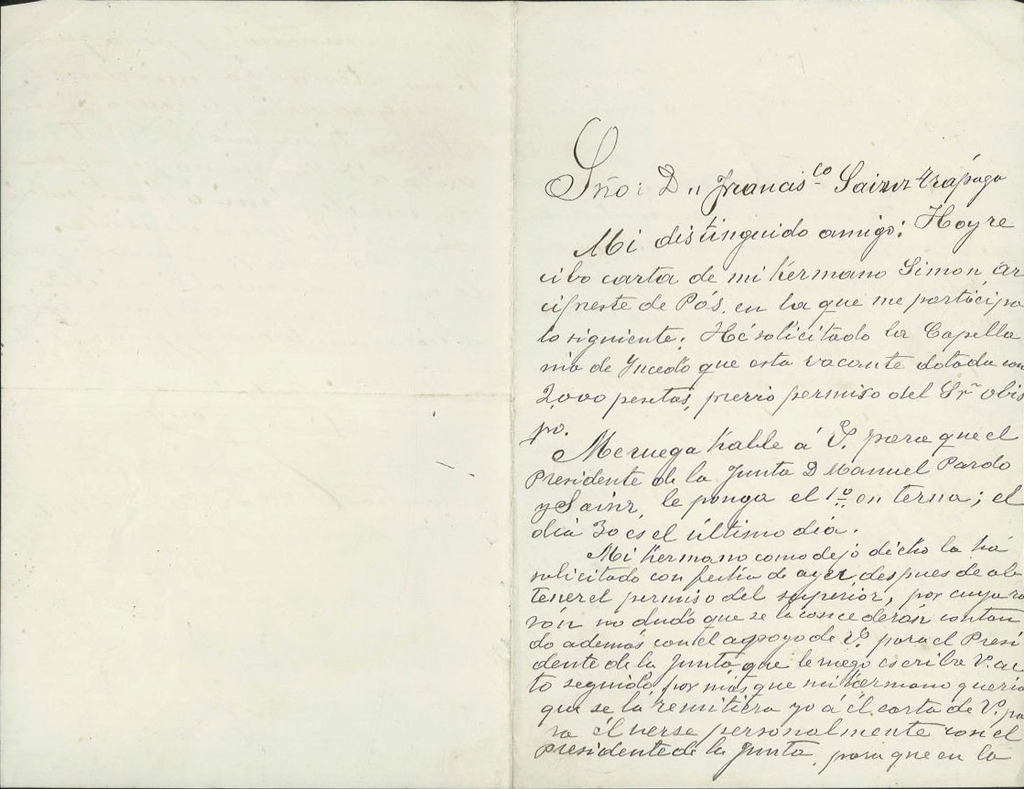 Sño: Dn Francisco Sainz Trápaga
Mi distinguido amigo: Hoy re
cibo carta de mi hermano Simon Ar
cipreste de Pás, en la que me participa
lo siguiente: Hé solicitado la Capella
nia de Yucedo que esta vacante dotada con
2,000 pesetas, previo permiso del Sr obis
po.
Me ruega hable á V. para que el
Presidente de la Junta D Manuel Pardo
y Sainz, le ponga el 1º en terna; el
dia 30 es el último dia.
Mi hermano como dejo dicho la há
solicitado con fecha de ayer, despues de ob
tener el permiso del superior, por cuya ra
zón no dudó que se la concederán contan
do además con el apoyo de V. para el Presi
dente de la Junta, que le ruego escriba V. ac
to seguido, por más que mi hermano queria
que se la remitiera yo á él carta de V. pa
ra él verse personalmente con el
Presidente de la Junta, para que en la